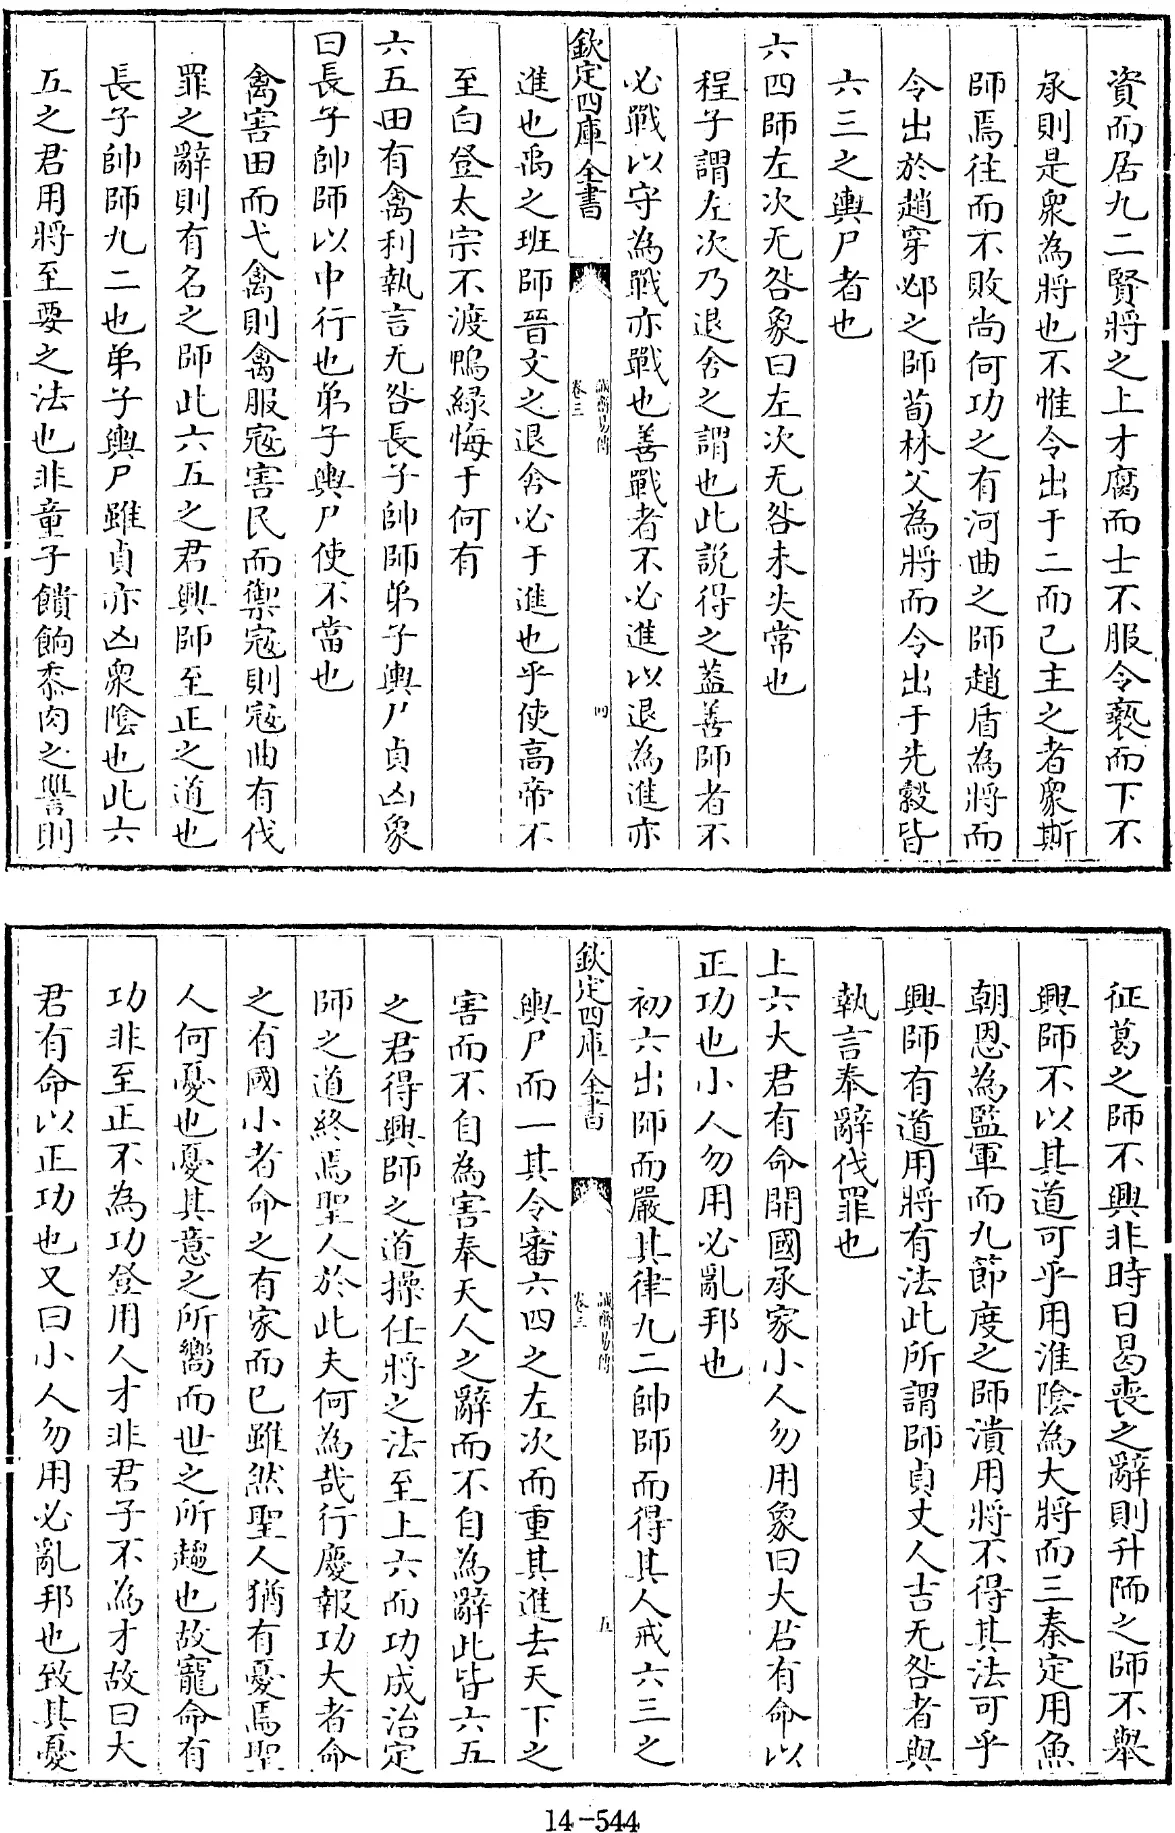 資而居九二賢將之上才腐而士不服令褻而下不
承則是衆為將也不惟令出于二而已主之者衆斯
師焉往而不敗尚何功之有河曲之師趙盾為將而
令出於趙穿邲之師荀林父為將而令出于先縠皆
六三之輿尸者也
六四師左次无咎象曰左次无咎未失常也
程子謂左次乃退舍之謂也此說得之蓋善師者不
必戰以守為戰亦戰也善戰者不必進以退為進亦
欽定四庫全書
誠齋易傳
卷三
四
進也禹之班師晉文之退舍必于進也乎使高帝不
至白登太宗不渡鴨綠悔于何有
六五田有禽利執言无咎長子帥師弟子輿尸貞凶象
曰長子帥師以中行也弟子輿尸使不當也
禽害田而弋禽則禽服寇害民而禦寇則寇曲有伐
罪之辭則有名之師此六五之君興師至正之道也
長子帥師九二也弟子輿尸雖貞亦凶衆陰也此六
五之君用將至要之法也非童子饋餉黍肉之讐則
征葛之師不興非時日曷喪之辭則升陑之師不舉
興師不以其道可乎用淮陰為大將而三秦定用魚
朝恩為監軍而九節度之師潰用將不得其法可乎
興師有道用將有法此所謂師貞丈人吉无咎者與
執言奉辭伐罪也
上六大君有命開國承家小人勿用象曰大君有命以
正功也小人勿用必亂邦也
初六出師而嚴其律九二帥師而得其人戒六三之
欽定四庫全書
誠齋易傳
卷三
五
輿尸而一其令審六四之左次而重其進去天下之
害而不自為害奉天人之辭而不自為辭此皆六五
之君得興師之道操任將之法至上六而功成治定
師之道終焉聖人於此夫何為哉行慶報功大者命
之有國小者命之有家而已雖然聖人猶有憂焉聖
人何憂也憂其意之所嚮而世之所趨也故寵命有
功非至正不為功登用人才非君子不為才故曰大
君有命以正功也又曰小人勿用必亂邦也致其憂
14-544